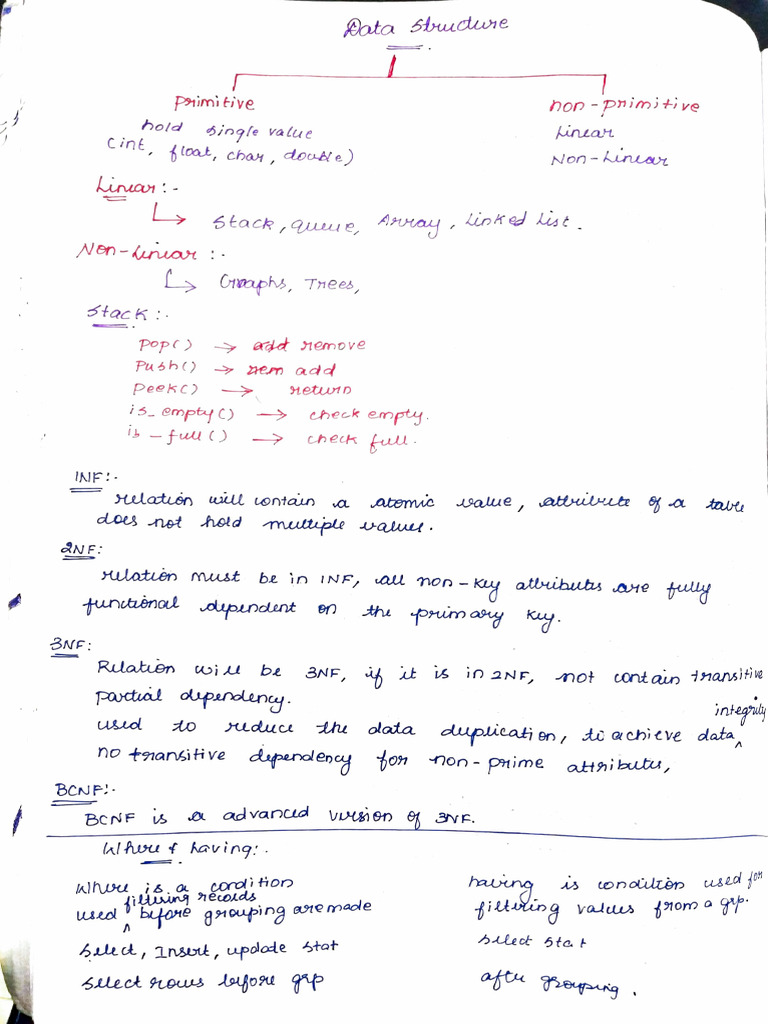 Data Structure
Primitive
non-primitive
hold single value
Linear
(int, float, char, double)
Non-Linear
Linear:-
Stack, Queue, Array, Linked List.
Non-Linear:-
Graphs, Trees,
Stack:-
pop() → add remove
Push() → rem add
Peek() → return
is_empty() → check empty.
is_full() → check full.
1NF:-
relation will contain a atomic value, attribute of a table
does not hold multiple values.
2NF:
relation must be in 1NF, all non-key attributes are fully
functional dependent on the primary key.
3NF:
Relation will be 3NF, if it is in 2NF, not contain transitive
partial dependency.
used to reduce the data duplication, to achieve data integrity
no transitive dependency for non-prime attributes,
BCNF:-
BCNF is a advanced version of 3NF.
Where & having:-
Where is a condition
used filtering records before grouping are made
Select, Insert, update stat
select rows before grp
having is condition used for
filtering values from a grp.
select stat
after grouping.